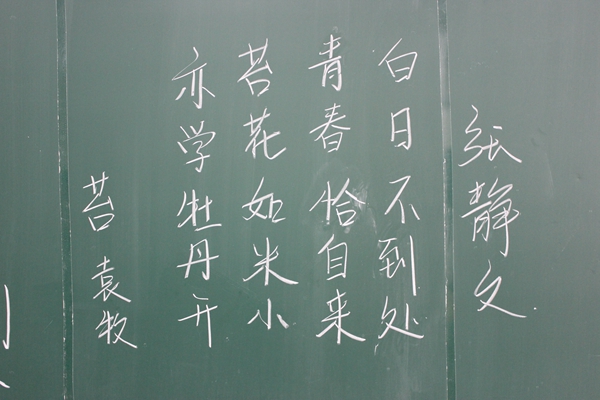 张静文
白日不到处
青春恰自来
苔花如米小
亦学牡丹开
苔 袁牧